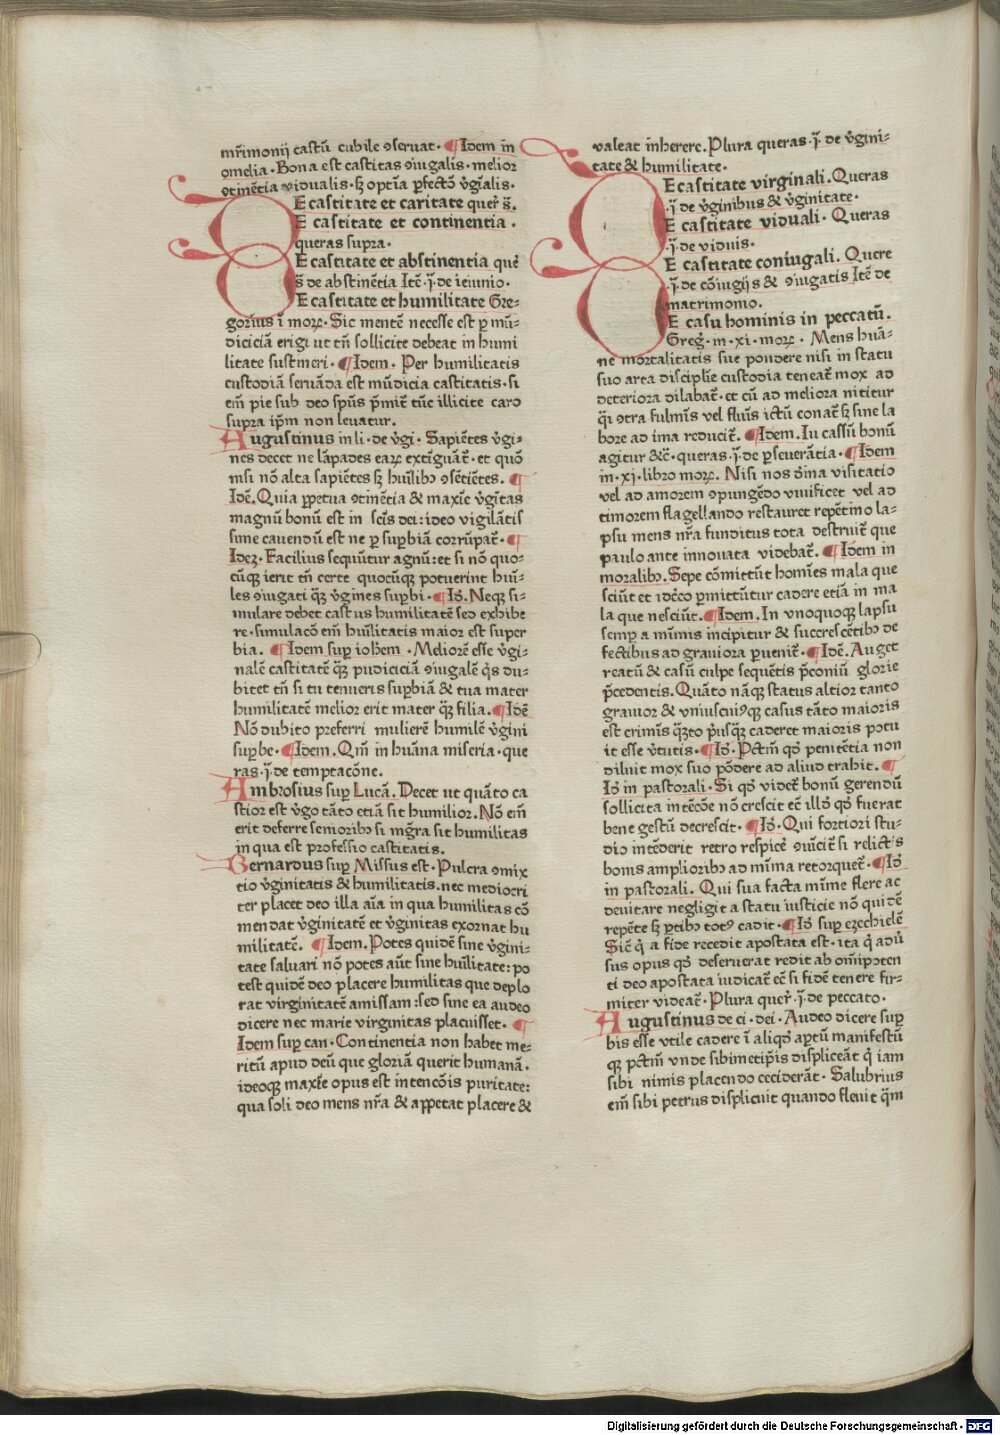 mr̃imonij castũ cubile ꝯseruat. ¶Idem in
omelia. Bona est castitas ꝯiugalis. melior
ꝯtinẽtia vidualis. sꝫ optĩa p̱fectoꝝ v̾gĩalis.
DE castitate et caritate quer̃ s̃.
DE castitate et continentia.
queras supra.
DE castitate et abstinentia quer̃
s̃ de abstinẽtia Itẽ .j̃. de ieiunio.
DE castitate et humilitate Gre⸗
gorius ĩ moꝝ. Sic mentẽ necesse est ꝑ mũ⸗
diciciã erigi ut tñ sollicite debeat in humi
litate sustineri. ¶Idem. Per humilitatis
custodiã seruãda est mũdicia castitatis. si
em̃ pie sub deo spũs p̃mit̃ tũc illicite caro
supra ip̃m non leuatur.
Augustinus in li. de v̾gi. Sapiẽtes v̾gi⸗
nes decet ne lãpades eaꝝ extĩguãt̃. et quõ
nisi nõ alta sapiẽtes sꝫ hũilibꝰ ꝯsẽtiẽtes. ¶
Idẽ. Quia ꝑpetua ꝯtinẽtia & maxĩe v̾gĩtas
magnũ bonũ est in scĩs dei: ideo vigilãtiss
sime cauendũ est ne ꝑ suꝑbiã corrũpat̃. ¶
Ideꝫ. Facilius sequũtur agnũ: et si nõ quo⸗
cũqꝫ ierit tñ certe quocũqꝫ potuerint hũi⸗
les ꝯiugati q̃ꝫ v̾gines suꝑbi. ¶Iđ. Neqꝫ si⸗
mulare debet castus humilitatẽ sed exhibe
re. simulacõ em̃ hũilitatis maior est super
bia. ¶Idem suꝑ iohem. Meliorẽ esse v̾gi⸗
nalẽ castitatẽ q̃ꝫ pudiciciã ꝯiugalẽ q̃s du⸗
bitet tñ si tu tenueris suꝑbiã & tua mater
humilitatẽ melior erit mater q̃ꝫ filia. ¶Idẽ
Nõ dubito preferri mulierẽ humilẽ v̾gini
suꝑbe. ¶Idem. Qm̃ in hũana miseria. que
ras .j̃. de temptacõne.
Ambrosius suꝑ Lucã. Decet ut quãto ca
stior est v̾go tãto etiã sit humilior. Nõ em̃
erit deferre senioribꝰ si mg̃ra sit humilitas
in qua est professio castitatis.
Bernardus suꝑ Missus est. Pulcra ꝯmix
tio v̾ginitatis & humilitatis. nec mediocri
ter placet deo illa aĩa in qua humilitas cõ
mendat v̾ginitatẽ et v̾ginitas exornat hu
militatẽ. ¶Idem. Potes quidẽ sine v̾gini⸗
tate saluari nõ potes aũt sine hũilitate: po
test quidẽ deo placere humilitas que deplo
rat virginitatẽ amissam: sed sine ea audeo
dicere nec marie virginitas placuisset. ¶
Idem suꝑ can. Continentia non habet me⸗
ritũ apud deũ que gloriã querit humanã.
ideoqꝫ maxĩe opus est intencõis puritate:
qua soli deo mens nr̃a & appetat placere &
valeat inherere. Plura queras .j̃. de v̾gini⸗
tate & humilitate.
DE castitate virginali. Queras
.j̃. de v̾ginibus & v̾ginitate.
DE castitate viduali. Queras
.j̃. de viduis.
DE castitate coniugali. Quere
.j̃. de cõiugijs & ꝯiugatis Itẽ de
matrimonio.
DE casu hominis in peccatũ.
Greg̃. in. xi. moꝝ. Mens hũa⸗
ne mortalitatis sue pondere nisi in statu
suo arta disciplĩe custodia teneat̃ mox ad
deteriora dilabat̃. et cũ ad meliora nititur
q̃i ꝯtra fulmĩs vel fluuĩs ictũ conat̃ sꝫ sine la
bore ad ima reducit̃. ¶Idem. In cassũ bonũ
agitur &c̃. queras .j̃. de ꝑseuerãtia. ¶Idem
in. xj. libro moꝝ. Nisi nos diũina visitatio
vel ad amorem ꝯpungẽdo viuificet vel ad
timorem flagellando restauret repẽtino la⸗
psu mens nr̃a funditus tota destruit̃ que
paulo ante innouata videbat̃. ¶Idem in
moralibꝰ. Sepe cõmittũt homĩes mala que
sciũt et idẽco ꝑmittũtur cadere etiã in ma
la que nesciũt. ¶Idem. In vnoquoqꝫ lapsu
semꝑ a mĩmis incipitur & succrescẽtibꝰ de
fectibus ad grauiora ꝑuenit̃. ¶Idẽ. Auget
reatũ & casũ culpe sequẽtis p̃coniũ glorie
p̃cedentis. Quãto nãqꝫ status altior tanto
grauior & vniuscuiꝯqꝫ casus tãto maioris
est crimĩs q̃ꝫto p̃usq̃ꝫ caderet maioris potu
it esse v̾tutis. ¶Iđ. Pctm̃ qđ penitẽtia non
diluit mox suo põdere ad aliud trahit. ¶
Iđ in pastorali. Si qđ videt̃ bonũ gerendũ
sollicita intẽcõe nõ crescit ec̃ illđ qđ fuerat
bene gestũ decrescit. ¶Iđ. Qui fortiori stu⸗
dio intẽderit retro respicẽ ꝯuĩcit̃ si relict̾s
bonis amplioribꝰ ad mĩma retorquet̃. ¶Iđ
in pastorali. Qui sua facta mĩme flere ac
deuitare negligit a statu iusticie nõ quidẽ
repẽte sꝫ ꝑtibꝰ totꝰ cadit. ¶Iđ suꝑ ezechielẽ
Sic̃ q̃ a fide recedit apostata est. ita q̃ aduͤ
sus opus qđ deseruerat redit ab om̃ipoten
ti deo apostata iudicat̃ ec̃ si fidẽ tenere fir⸗
miter videat̃. Plura quer̃ .j̃. de peccato.
Augustinus de ci. dei. Audeo dicere suꝑ
bis esse vtile cadere ĩ aliqđ aꝑtũ manifestũ
qꝫ pctm̃ vnde sibimetip̃is displiceãt q̃ iam
sibi nimis placendo ceciderãt. Salubrius
em̃ sibi petrus displicuit quando fleuit q̃m
Digitalisierung gefördert durch die Deutsche Forschungsgemeinschaft - DFG